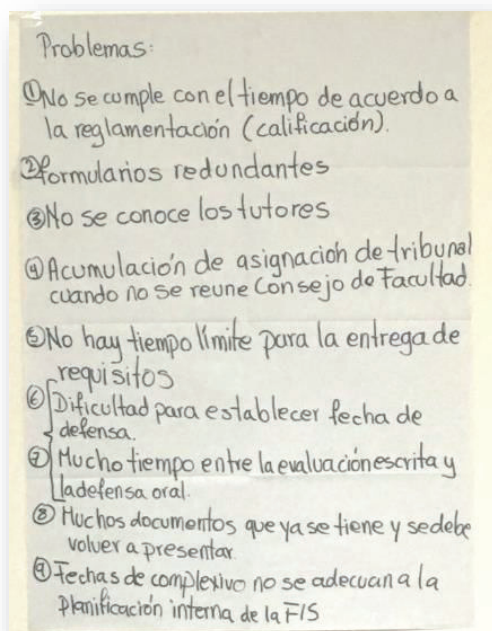 Problemas:
① No se cumple con el tiempo de acuerdo a
la reglamentación (calificación).
② formularios redundantes
③ No se conoce los tutores
④ Acumulación de asignación de tribunal
cuando no se reune Consejo de Facultad.
⑤ No hay tiempo límite para la entrega de
requisitos
⑥ Dificultad para establecer fecha de
defensa.
⑦ Mucho tiempo entre la evaluación escrita y
la defensa oral.
⑧ Muchos documentos que ya se tiene y se debe
volver a presentar
⑨ Fechas de complexivo no se adecuan a la
planificación interna de la FIS